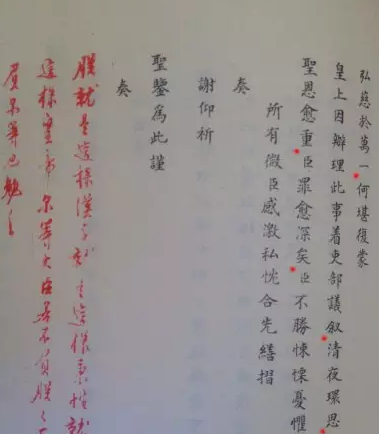 弘慈於萬一何堪復蒙
皇上因辦理此事着吏部議叙清夜環思
聖恩愈重臣罪愈深矣臣不勝悚慄憂懼
所有微臣感激私忱合先繕摺
奏
謝仰祈
聖鑒為此謹
奏
朕就是這樣漢子就是這樣秉性就
這樣皇帝尔等大臣若不負朕
負尔等也勉之